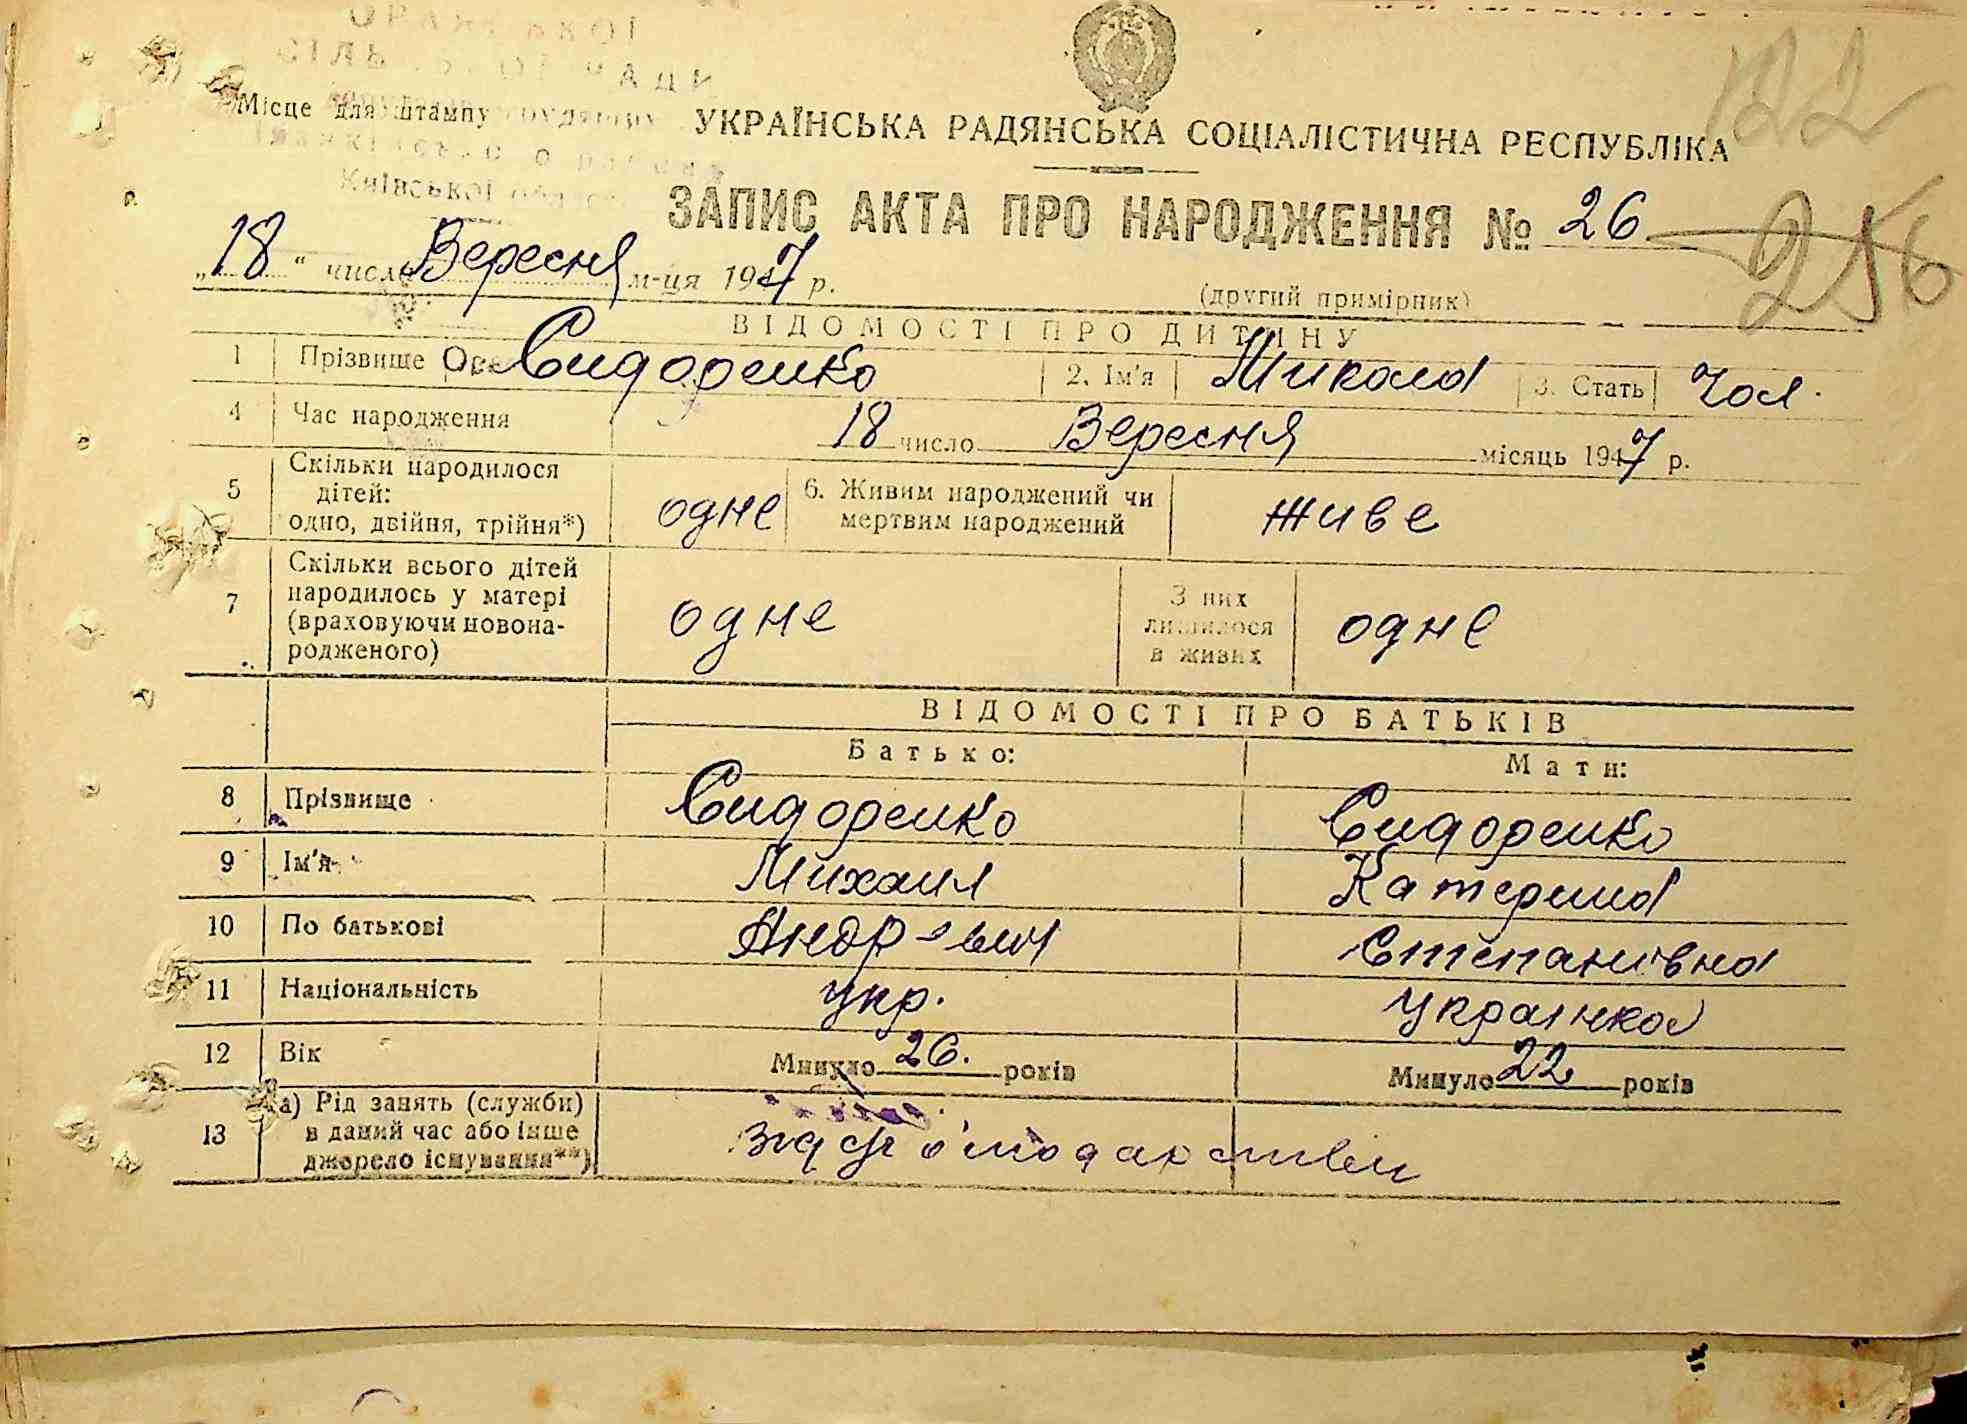 Місце для штампу
УКРАЇНСЬКА РАДЯНСЬКА СОЦІАЛІСТИЧНА РЕСПУБЛІКА
122
ЗАПИС АКТА ПРО НАРОДЖЕННЯ № 26
256
„18“ число Вересня м-ця 1947 р.
(другий примірник)
ВІДОМОСТІ ПРО ДИТИНУ
1 Прізвище Сидоренко 2. Ім'я Микола 3. Стать чол.
4 Час народження 18 число Вересня місяць 1947 р.
5 Скільки народилося дітей: одно, двійня, трійня*) одне 6. Живим народжений чи мертвим народжений живе
7 Скільки всього дітей народилось у матері (враховуючи новонародженого) одне З них лишилося в живих одне
ВІДОМОСТІ ПРО БАТЬКІВ
Батько: Мати:
8 Прізвище Сидоренко Сидоренко
9 Ім'я Михаил Катерина
10 По батькові Андр-вич Степанівна
11 Національність укр. українка
12 Вік Минуло 26. років Минуло 22 років
13 а) Рід занять (служби) в даний час або інше джерело існування**)